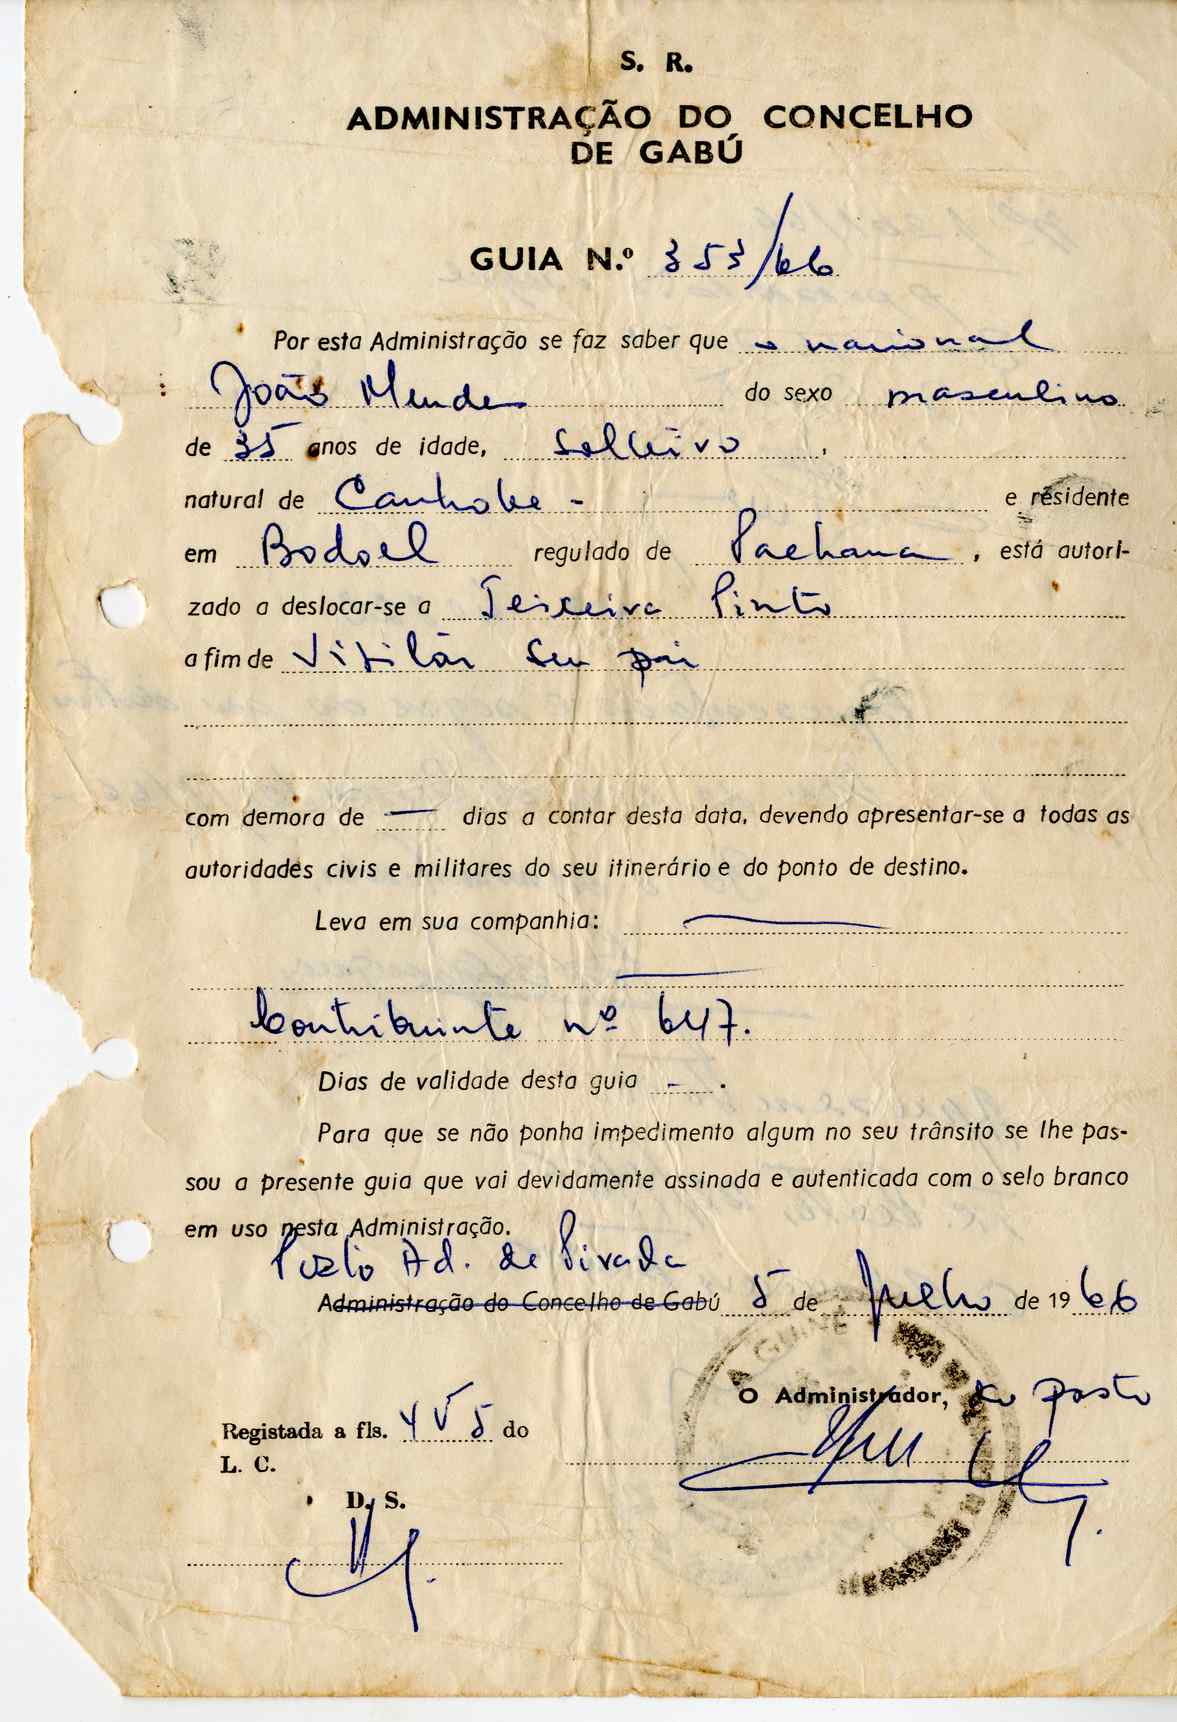 S. R.
ADMINISTRAÇÃO DO CONCELHO
DE GABÚ
GUIA N.º 353/66
Por esta Administração se faz saber que o nacional
João Mendes do sexo masculino
de 35 anos de idade, solteiro,
natural de Canhobe - e residente
em Bodoel regulado de Pachana, está autori-
zado a deslocar-se a Teixeira Pinto
a fim de visitar seu pai
com demora de — dias a contar desta data, devendo apresentar-se a todas as
autoridades civis e militares do seu itinerário e do ponto de destino.
Leva em sua companhia: —
—
Contribuinte nº 647.
Dias de validade desta guia - .
Para que se não ponha impedimento algum no seu trânsito se lhe pas-
sou a presente guia que vai devidamente assinada e autenticada com o selo branco
em uso nesta Administração.
Posto Ad. de Pirada
Administração do Concelho de Gabú 5 de Julho de 1966
O Administrador, do posto
Registada a fls. 4 V 5 do
L. C.
D. S.